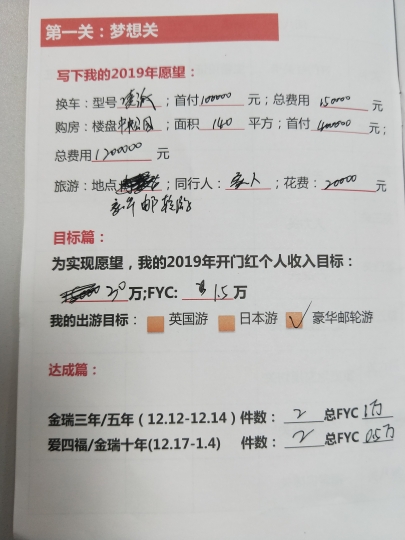 第一关：梦想关
写下我的2019年愿望：
换车：型号；首付100000元；总费用150000元
购房：楼盘；面积140平方；首付400000元；
总费用1200000元
旅游：地点；同行人：家人；花费：20000元
豪华邮轮
目标篇：
为实现愿望，我的2019年开门红个人收入目标：
20万;FYC: 1.5万
我的出游目标： 英国游 日本游 ✓ 豪华邮轮游
达成篇：
金瑞三年/五年（12.12-12.14）件数：2 总FYC 1万
爱四福/金瑞十年(12.17-1.4) 件数：2 总FYC 0.5万